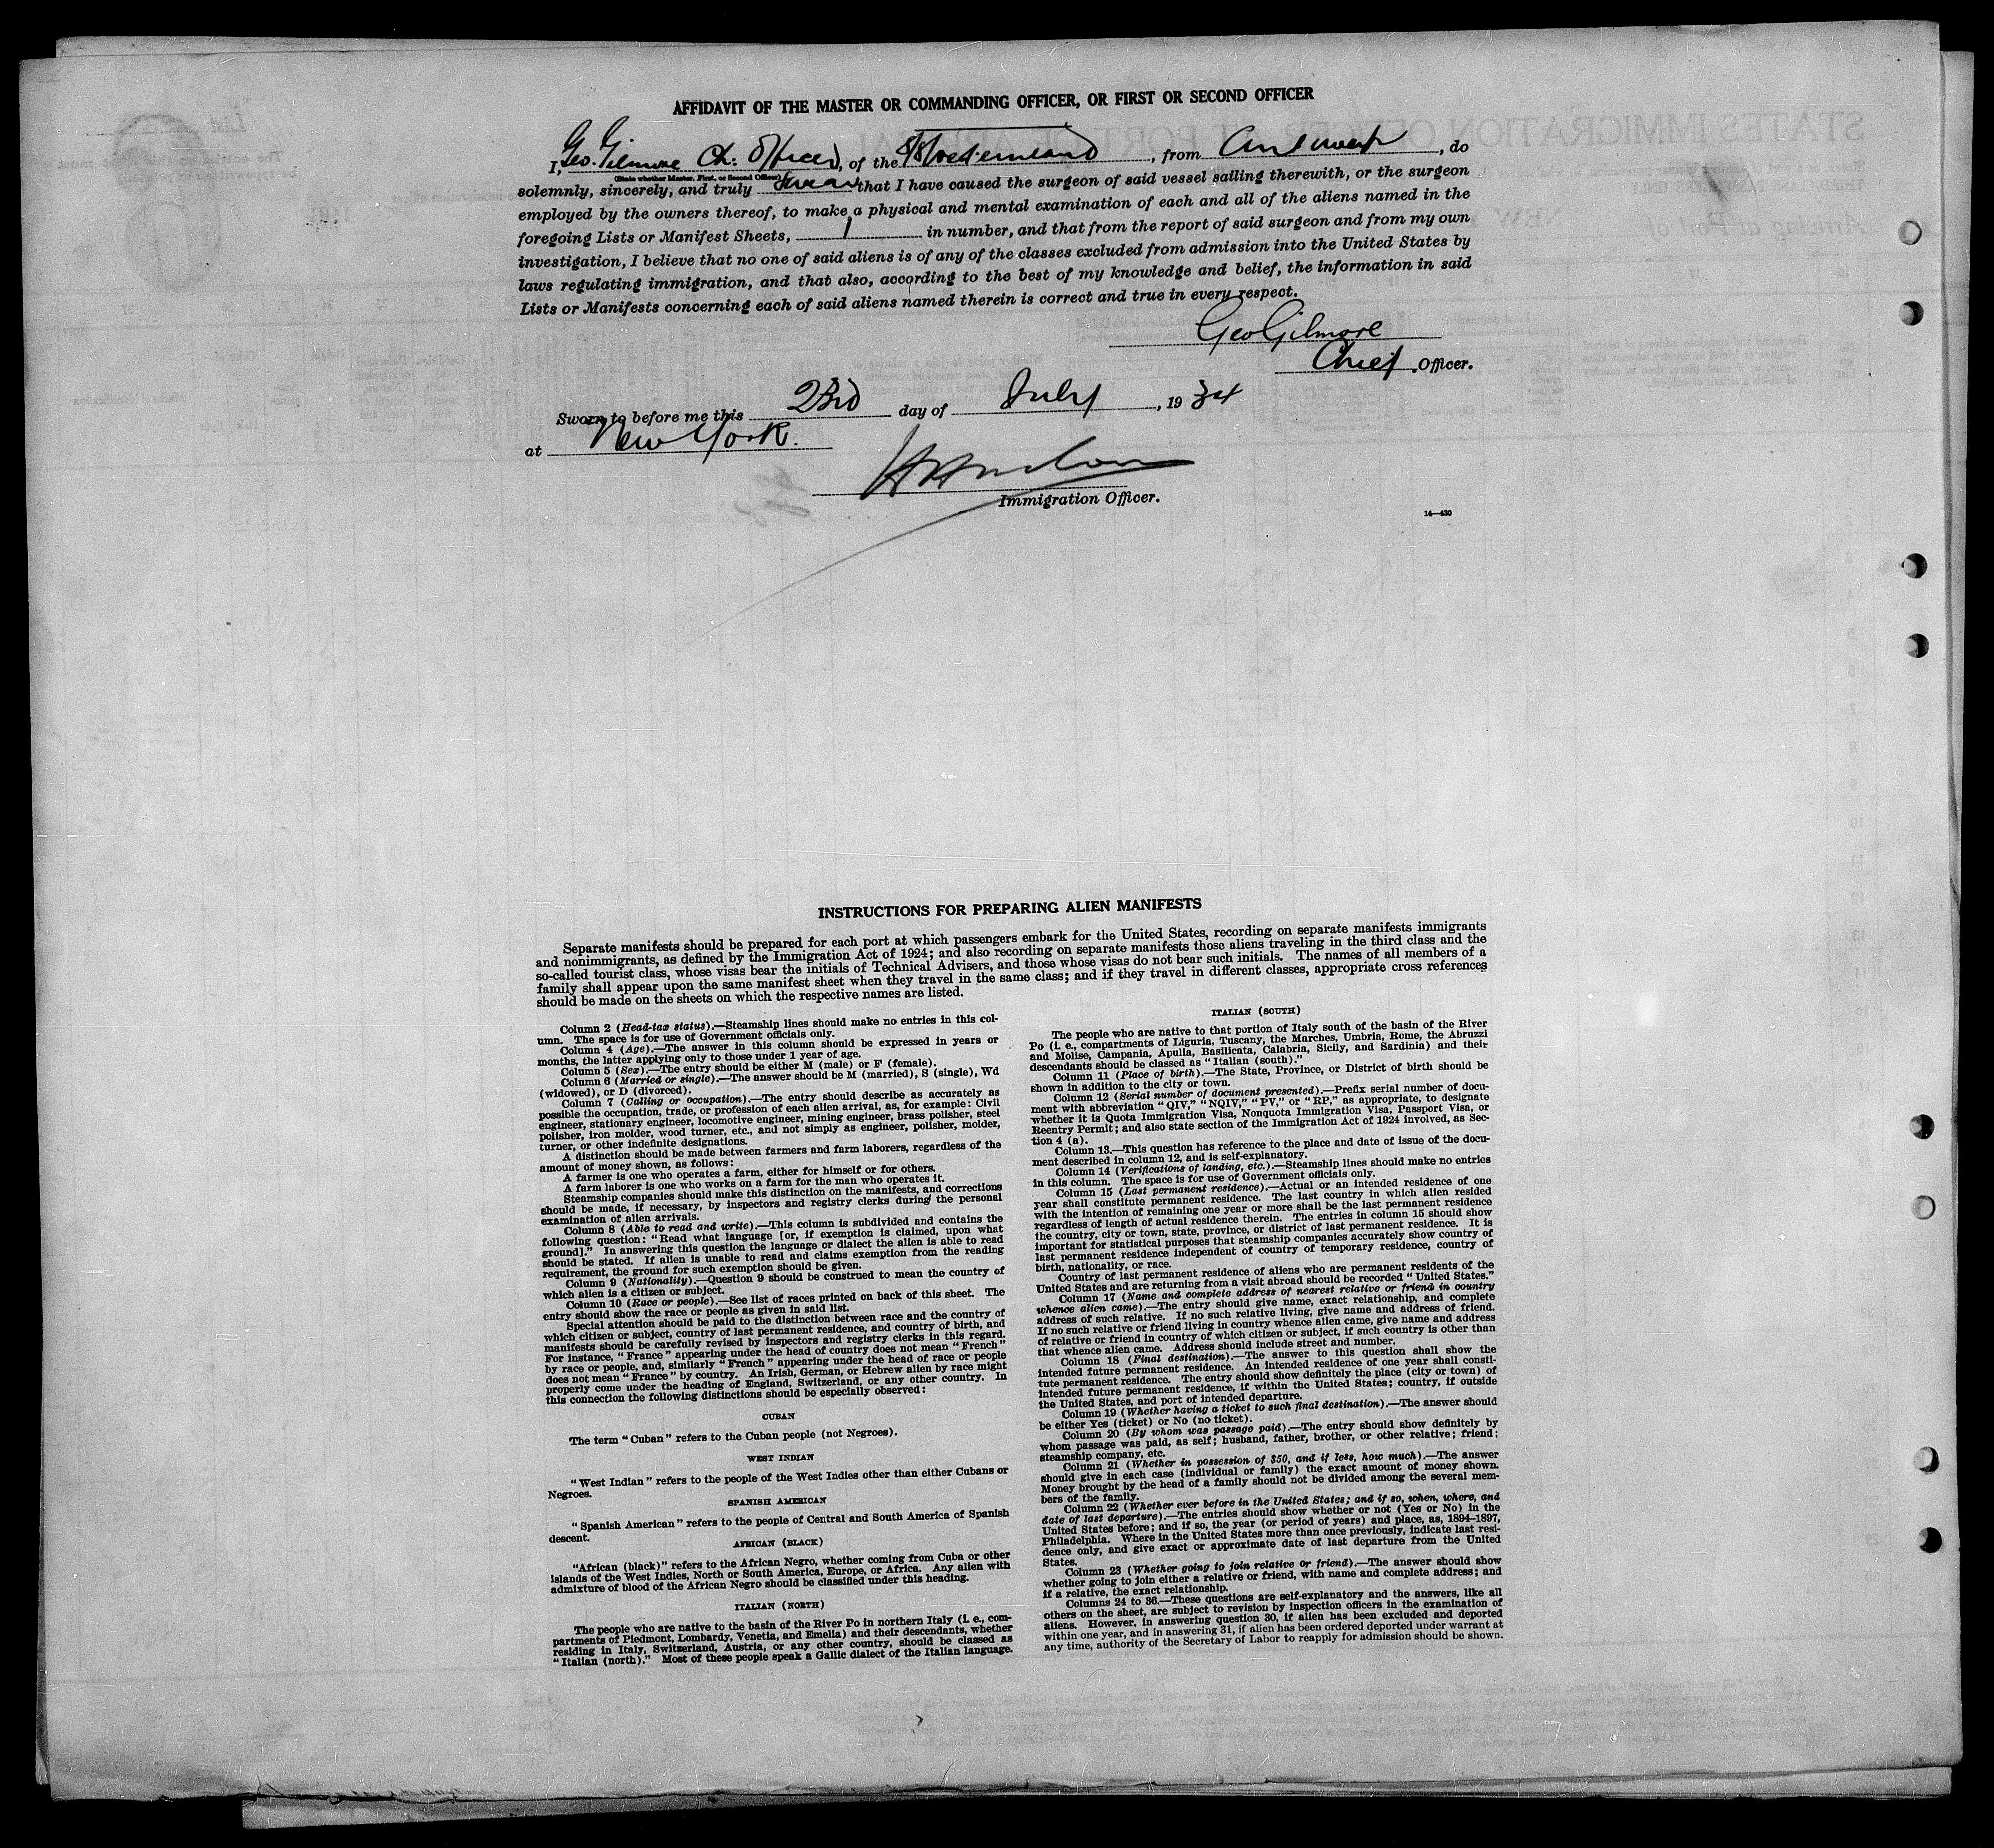 AFFIDAVIT OF THE MASTER OR COMMANDING OFFICER, OR FIRST OR SECOND OFFICER
I, Geo. Gilmore Ch: Officer, of the , from Antwerp, do
(State whether Master, First, or Second Officer)
solemnly, sincerely, and truly swear that I have caused the surgeon of said vessel sailing therewith, or the surgeon
employed by the owners thereof, to make a physical and mental examination of each and all of the aliens named in the
foregoing Lists or Manifest Sheets, 1 in number, and that from the report of said surgeon and from my own
investigation, I believe that no one of said aliens is of any of the classes excluded from admission into the United States by
laws regulating immigration, and that also, according to the best of my knowledge and belief, the information in said
Lists or Manifests concerning each of said aliens named therein is correct and true in every respect.
Geo Gilmore
Chief Officer.
Sworn to before me this 23rd day of July, 1934
at New York.
Immigration Officer.
14—430
INSTRUCTIONS FOR PREPARING ALIEN MANIFESTS
Separate manifests should be prepared for each port at which passengers embark for the United States, recording on separate manifests immigrants
and nonimmigrants, as defined by the Immigration Act of 1924; and also recording on separate manifests those aliens traveling in the third class and the
so-called tourist class, whose visas bear the initials of Technical Advisers, and those whose visas do not bear such initials. The names of all members of a
family shall appear upon the same manifest sheet when they travel in the same class; and if they travel in different classes, appropriate cross references
should be made on the sheets on which the respective names are listed.
Column 2 (Head-tax status).—Steamship lines should make no entries in this col-
umn. The space is for use of Government officials only.
Column 4 (Age).—The answer in this column should be expressed in years or
months, the latter applying only to those under 1 year of age.
Column 5 (Sex).—The entry should be either M (male) or F (female).
Column 6 (Married or single).—The answer should be M (married), S (single), Wd
(widowed), or D (divorced).
Column 7 (Calling or occupation).—The entry should describe as accurately as
possible the occupation, trade, or profession of each alien arrival, as, for example: Civil
engineer, stationary engineer, locomotive engineer, mining engineer, brass polisher, steel
polisher, iron molder, wood turner, etc., and not simply as engineer, polisher, molder,
turner, or other indefinite designations.
A distinction should be made between farmers and farm laborers, regardless of the
amount of money shown, as follows:
A farmer is one who operates a farm, either for himself or for others.
A farm laborer is one who works on a farm for the man who operates it.
Steamship companies should make this distinction on the manifests, and corrections
should be made, if necessary, by inspectors and registry clerks during the personal
examination of alien arrivals.
Column 8 (Able to read and write).—This column is subdivided and contains the
following question: "Read what language [or, if exemption is claimed, upon what
ground]." In answering this question the language or dialect the alien is able to read
should be stated. If alien is unable to read and claims exemption from the reading
requirement, the ground for such exemption should be given.
Column 9 (Nationality).—Question 9 should be construed to mean the country of
which alien is a citizen or subject.
Column 10 (Race or people).—See list of races printed on back of this sheet. The
entry should show the race or people as given in said list.
Special attention should be paid to the distinction between race and the country of
which citizen or subject, country of last permanent residence, and country of birth, and
manifests should be carefully revised by inspectors and registry clerks in this regard.
For instance, "France" appearing under the head of country does not mean "French"
by race or people, and, similarly "French" appearing under the head of race or people
does not mean "France" by country. An Irish, German, or Hebrew alien by race might
properly come under the heading of England, Switzerland, or any other country. In
this connection the following distinctions should be especially observed:
CUBAN
The term "Cuban" refers to the Cuban people (not Negroes).
WEST INDIAN
"West Indian" refers to the people of the West Indies other than either Cubans or
Negroes.
SPANISH AMERICAN
"Spanish American" refers to the people of Central and South America of Spanish
descent.
AFRICAN (BLACK)
"African (black)" refers to the African Negro, whether coming from Cuba or other
islands of the West Indies, North or South America, Europe, or Africa. Any alien with
admixture of blood of the African Negro should be classified under this heading.
ITALIAN (NORTH)
The people who are native to the basin of the River Po in northern Italy (i. e., com-
partments of Piedmont, Lombardy, Venetia, and Emelia) and their descendants, whether
residing in Italy, Switzerland, Austria, or any other country, should be classed as
"Italian (north)." Most of these people speak a Gallic dialect of the Italian language.
ITALIAN (SOUTH)
The people who are native to that portion of Italy south of the basin of the River
Po (i. e., compartments of Liguria, Tuscany, the Marches, Umbria, Rome, the Abruzzi
and Molise, Campania, Apulia, Basilicata, Calabria, Sicily, and Sardinia) and their
descendants should be classed as "Italian (south)."
Column 11 (Place of birth).—The State, Province, or District of birth should be
shown in addition to the city or town.
Column 12 (Serial number of document presented).—Prefix serial number of docu-
ment with abbreviation "QIV," "NQIV," "PV," or "RP," as appropriate, to designate
whether it is Quota Immigration Visa, Nonquota Immigration Visa, Passport Visa, or
Reentry Permit; and also state section of the Immigration Act of 1924 involved, as Sec-
tion 4 (a).
Column 13.—This question has reference to the place and date of issue of the docu-
ment described in column 12, and is self-explanatory.
Column 14 (Verifications of landing, etc.).—Steamship lines should make no entries
in this column. The space is for use of Government officials only.
Column 15 (Last permanent residence).—Actual or an intended residence of one
year shall constitute permanent residence. The last country in which alien resided
with the intention of remaining one year or more shall be the last permanent residence
regardless of length of actual residence therein. The entries in column 15 should show
the country, city or town, state, province, or district of last permanent residence. It is
important for statistical purposes that steamship companies accurately show country of
last permanent residence independent of country of temporary residence, country of
birth, nationality, or race.
Country of last permanent residence of aliens who are permanent residents of the
United States and are returning from a visit abroad should be recorded "United States."
Column 17 (Name and complete address of nearest relative or friend in country
whence alien came).—The entry should give name, exact relationship, and complete
address of such relative. If no such relative living, give name and address of friend.
If no such relative or friend living in country whence alien came, give name and address
of relative or friend in country of which citizen or subject, if such country is other than
that whence alien came. Address should include street and number.
Column 18 (Final destination).—The answer to this question shall show the
intended future permanent residence. An intended residence of one year shall consti-
tute permanent residence. The entry should show definitely the place (city or town) of
intended future permanent residence, if within the United States; country, if outside
the United States, and port of intended departure.
Column 19 (Whether having a ticket to such final destination).—The answer should
be either Yes (ticket) or No (no ticket).
Column 20 (By whom was passage paid).—The entry should show definitely by
whom passage was paid, as self; husband, father, brother, or other relative; friend;
steamship company, etc.
Column 21 (Whether in possession of $50, and if less, how much).—The answer
should give in each case (individual or family) the exact amount of money shown.
Money brought by the head of a family should not be divided among the several mem-
bers of the family.
Column 22 (Whether ever before in the United States; and if so, when, where, and
date of last departure).—The entries should show whether or not (Yes or No) in the
United States before; and if so, the year (or period of years) and place, as, 1894–1897,
Philadelphia. Where in the United States more than once previously, indicate last resi-
dence only, and give exact or approximate date of last departure from the United
States.
Column 23 (Whether going to join relative or friend).—The answer should show
whether going to join either a relative or friend, with name and complete address; and
if a relative, the exact relationship.
Columns 24 to 36.—These questions are self-explanatory and the answers, like all
others on the sheet, are subject to revision by inspection officers in the examination of
aliens. However, in answering question 30, if alien has been excluded and deported
within one year, and in answering 31, if alien has been ordered deported under warrant at
any time, authority of the Secretary of Labor to reapply for admission should be shown.